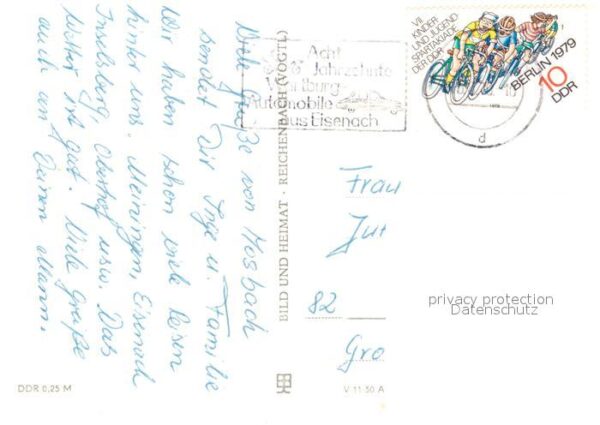 Viele Grüße von Mosbach
sendet Dir Inge u. Familie
Wir haben schon viele Reisen
hinter uns. Meiningen, Eisenach
Inselsberg Oberhof usw. Das
Wetter ist gut. Viele Grüße
auch an Deinen Mann.
BILD UND HEIMAT · REICHENBACH (VOGTL)
DDR 0,25 M
V 11 50 A
Acht
Jahrzehnte
Wartburg-
Automobile
aus Eisenach
VII
KINDER
UND JUGEND
SPARTAKIADE
DER DDR
BERLIN 1979
10
DDR
d
Frau
Jut
82
Gro
privacy protection
Datenschutz